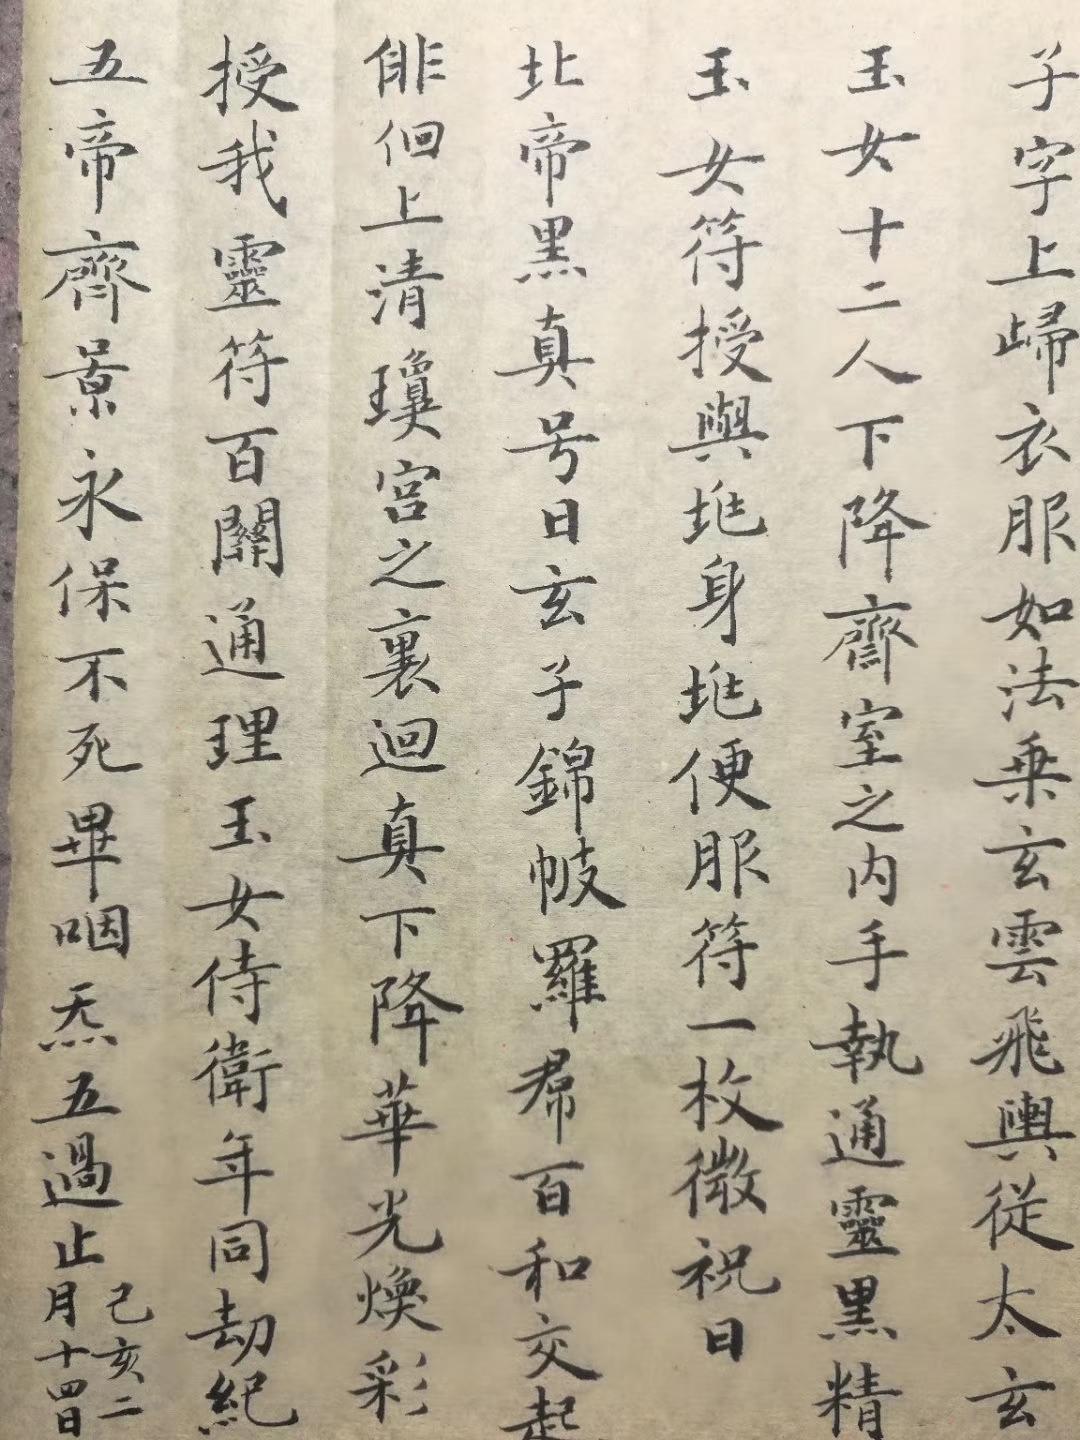 子字上歸衣服如法乗玄雲飛輿從太玄
玉女十二人下降齋室之内手執通靈黒精
玉女符授與兆身兆便服符一枚微祝曰
北帝黒真号曰玄子錦帔羅帬百和交起
俳佪上清瓊宮之裏迴真下降華光煥彩
授我靈符百關通理玉女侍衛年同劫紀
五帝齊景永保不死畢咽炁五過止
己亥二
月十四日